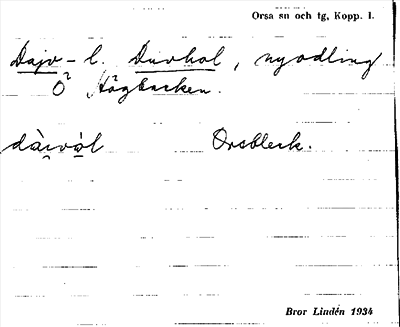 Orsa sn och tg, Kopp. l.
Dajv- l. Duvhol, nyodling
Ö² Högbacken.
dàivål Orsbleck.
Bror Lindén 1934